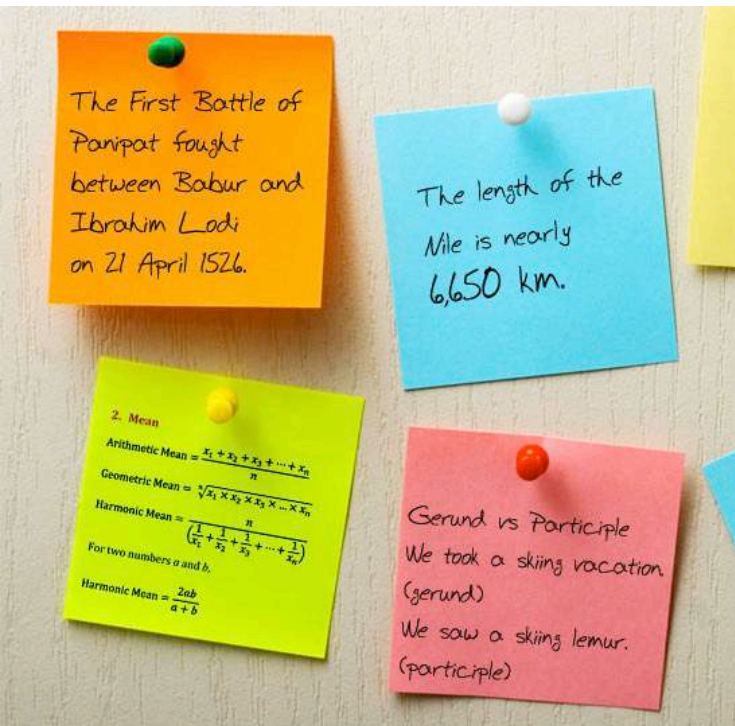 The First Battle of
Panipat fought
between Babur and
Ibrahim Lodi
on 21 April 1526.
The length of the
Nile is nearly
6,650 km.
2. Mean
Arithmetic Mean = \frac{x_1 + x_2 + x_3 + ⋯ + x_n}{n}
Geometric Mean = \sqrt[n]{x_1 × x_2 × x_3 × … × x_n}
Harmonic Mean = \frac{n}{(\frac{1}{x_1} + \frac{1}{x_2} + \frac{1}{x_3} + ⋯ + \frac{1}{x_n})}
For two numbers a and b,
Harmonic Mean = \frac{2ab}{a + b}
Gerund vs Participle
We took a skiing vacation.
(gerund)
We saw a skiing lemur.
(participle)